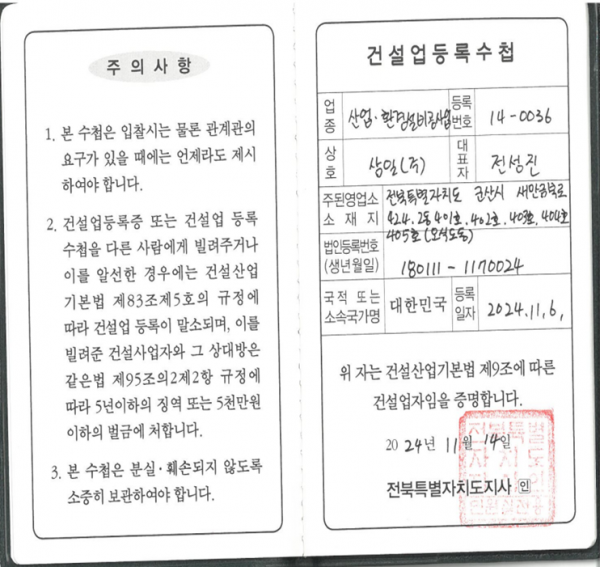 주의사항
1. 본 수첩은 입찰시는 물론 관계관의
요구가 있을 때에는 언제라도 제시
하여야 합니다.
2. 건설업등록증 또는 건설업 등록
수첩을 다른 사람에게 빌려주거나
이를 알선한 경우에는 건설산업
기본법 제83조제5호의 규정에
따라 건설업 등록이 말소되며, 이를
빌려준 건설사업자와 그 상대방은
같은법 제95조의2제2항 규정에
따라 5년이하의 징역 또는 5천만원
이하의 벌금에 처합니다.
3. 본 수첩은 분실·훼손되지 않도록
소중히 보관하여야 합니다.
건설업등록수첩
업종 산업·환경설비공사업 등록번호 14-0036
상호 상일(주) 대표자 전성진
주된영업소 전북특별자치도 군산시 새만금북로
소재지 424. 2동 401호, 402호, 403호, 404호
405호(오식도동)
법인등록번호
(생년월일) 180111-1170024
국적 또는
소속국가명 대한민국 등록일자 2024.11.6.
위 자는 건설산업기본법 제9조에 따른
건설업자임을 증명합니다.
2024년 11월 14일
전북특별자치도지사 인
전북특별
자치도